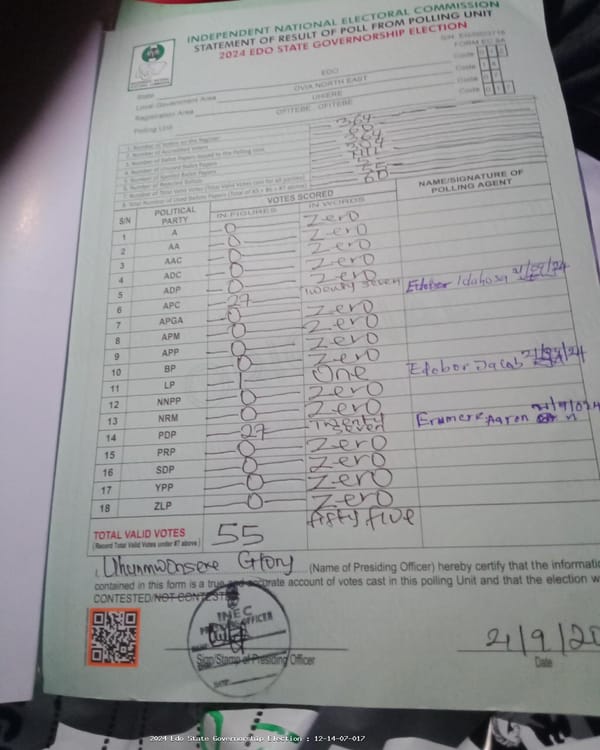 INDEPENDENT NATIONAL ELECTORAL COMMISSION
STATEMENT OF RESULT OF POLL FROM POLLING UNIT
2024 EDO STATE GOVERNORSHIP ELECTION
State EDO Code
Local Government Area OVIA NORTH EAST Code
Registration Area UHIERE Code
Polling Unit OFITEBE - OFITEBE Code
1. Number of Voters on the Register 364
2. Number of Accredited Voters 60
3. Number of Ballot Papers Issued to the Polling Unit 364
4. Number of Unused Ballot Papers 304
5. Number of Spoiled Ballot Papers NIL
6. Number of Rejected Ballots 5
7. Number of Total Valid Votes (Total Valid Votes cast for all parties) 55
8. Total Number of Used Ballot Papers (Total of #5 + #6 + #7 above) 60
S/N POLITICAL PARTY VOTES SCORED NAME/SIGNATURE OF POLLING AGENT
IN FIGURES IN WORDS
1 A 0 Zero
2 AA 0 Zero
3 AAC 0 Zero
4 ADC 0 Zero
5 ADP 0 Zero
6 APC 27 Twenty seven Efobor Idahosa 21/09/24
7 APGA 0 Zero
8 APM 0 Zero
9 APP 0 Zero
10 BP 0 Zero
11 LP 1 One Efobor Jacob 21/09/24
12 NNPP 0 Zero
13 NRM 0 Zero
14 PDP 27 Twenty seven Aaron
15 PRP 0 Zero
16 SDP 0 Zero
17 YPP 0 Zero
18 ZLP 0 Zero
TOTAL VALID VOTES 55 fifty five
(Record Total Valid Votes under #7 above)
I, Uhunmwonsere Glory (Name of Presiding Officer) hereby certify that the informatio
contained in this form is a true and accurate account of votes cast in this polling Unit and that the election w
CONTESTED/NOT CONTESTED
INEC
PRESIDING OFFICER
Sign/Stamp of Presiding Officer
DATE:
21/9/20
Date
2024 Edo State Governorship Election : 12-14-07-017